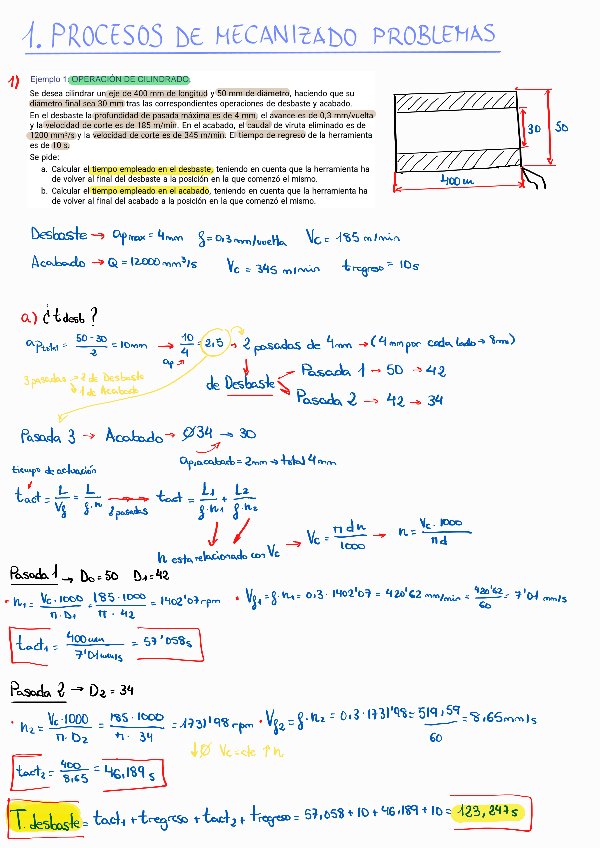 1. PROCESOS DE MECANIZADO PROBLEMAS
1) Ejemplo 1: OPERACIÓN DE CILINDRADO.
Se desea cilindrar un eje de 400 mm de longitud y 50 mm de diámetro, haciendo que su
diámetro final sea 30 mm tras las correspondientes operaciones de desbaste y acabado.
En el desbaste la profundidad de pasada máxima es de 4 mm, el avance es de 0,3 mm/vuelta
y la velocidad de corte es de 185 m/min. En el acabado, el caudal de viruta eliminado es de
1200 mm³/s y la velocidad de corte es de 345 m/min. El tiempo de regreso de la herramienta
es de 10 s.
Se pide:
a. Calcular el tiempo empleado en el desbaste, teniendo en cuenta que la herramienta ha
de volver al final del desbaste a la posición en la que comenzó el mismo.
b. Calcular el tiempo empleado en el acabado, teniendo en cuenta que la herramienta ha
de volver al final del acabado a la posición en la que comenzó el mismo.
30 50
400 m
Desbaste → apmax = 4mm f = 0,3 mm/vuelta Vc = 185 m/min
Acabado → Q = 12000 mm³/s Vc = 345 m/min tregreso = 10s
a) ¿t desb?
aptotal = 50-30/2 = 10mm → 10/4 = 2,5 → 2 pasadas de 4mm → (4mm por cada lado → 8mm)
ap
3 pasadas → 2 de Desbaste
↳ 1 de Acabado
de Desbaste
Pasada 1 → 50 → 42
Pasada 2 → 42 → 34
Pasada 3 → Acabado → Ø34 → 30
ap,acabado = 2mm → total 4mm
tiempo de actuación
tact = L/Vf = L/f·n → 2 pasadas tact = L1/f·n1 + L2/f·n2
n esta relacionado con Vc → Vc = πdn/1000 → n = Vc·1000/πd
Pasada 1 → D0 = 50 D1 = 42
• n1 = Vc·1000/π·D1 = 185·1000/π·42 = 1402'07 rpm • Vf1 = f·n1 = 0,3·1402'07 = 420'62 mm/min = 420'62/60 = 7'01 mm/s
tact1 = 400mm/7'01mm/s = 57'058s
Pasada 2 → D2 = 34
• n2 = Vc·1000/π·D2 = 185·1000/π·34 = 1731'98 rpm • Vf2 = f·n2 = 0,3·1731'98 = 519,59/60 = 8,65mm/s
↓Ø Vc=cte ↑n
tact2 = 400/8,65 = 46,189 s
T. desbaste = tact1 + tregreso + tact2 + tregreso = 57,058 + 10 + 46,189 + 10 = 123,247s